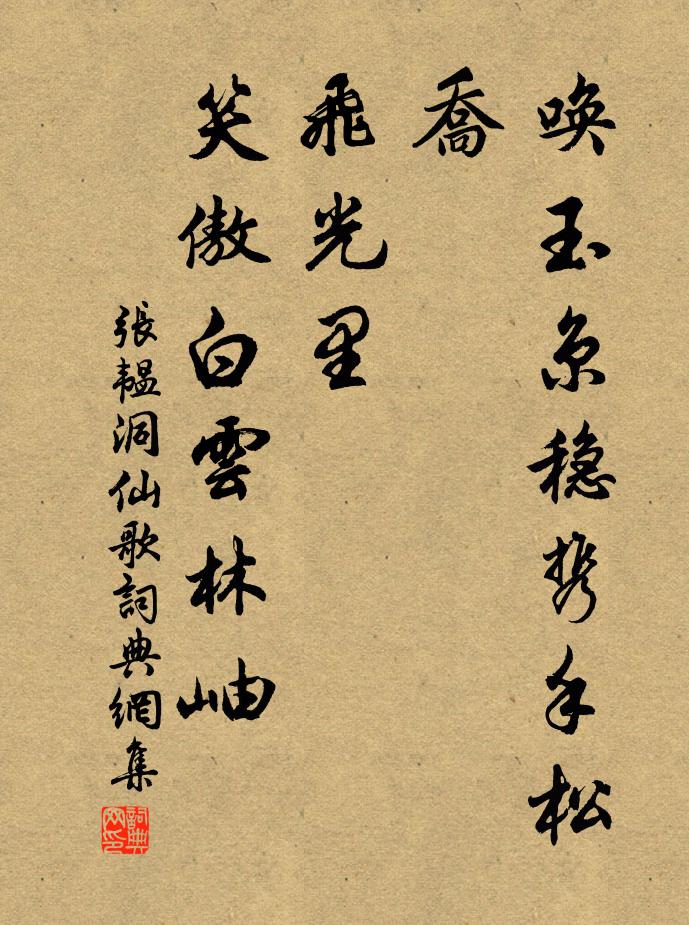 唤玉京稳携手松
喬
飛光里
笑傲白雲林岫
張韞洞仙歌詞典網集
詞典网印